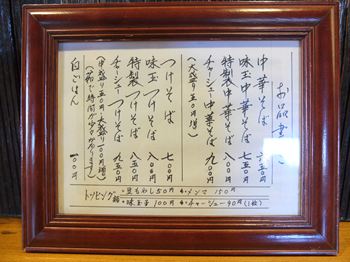 お品書き
中華そば 六五〇円
味玉中華そば 七五〇円
特製中華そば 八五〇円
チャーシュー中華そば 九〇〇円
(大盛り五〇円増)
つけそば 七〇〇円
味玉つけそば 八〇〇円
特製つけそば 九〇〇円
チャーシューつけそば 九五〇円
(中盛り五〇円 大盛り一〇〇円増)
白ごはん 一〇〇円
トッピング類
・豆もやし50円 ・メンマ 150円
・味玉子 100円 ・チャーシュー90円(1枚)